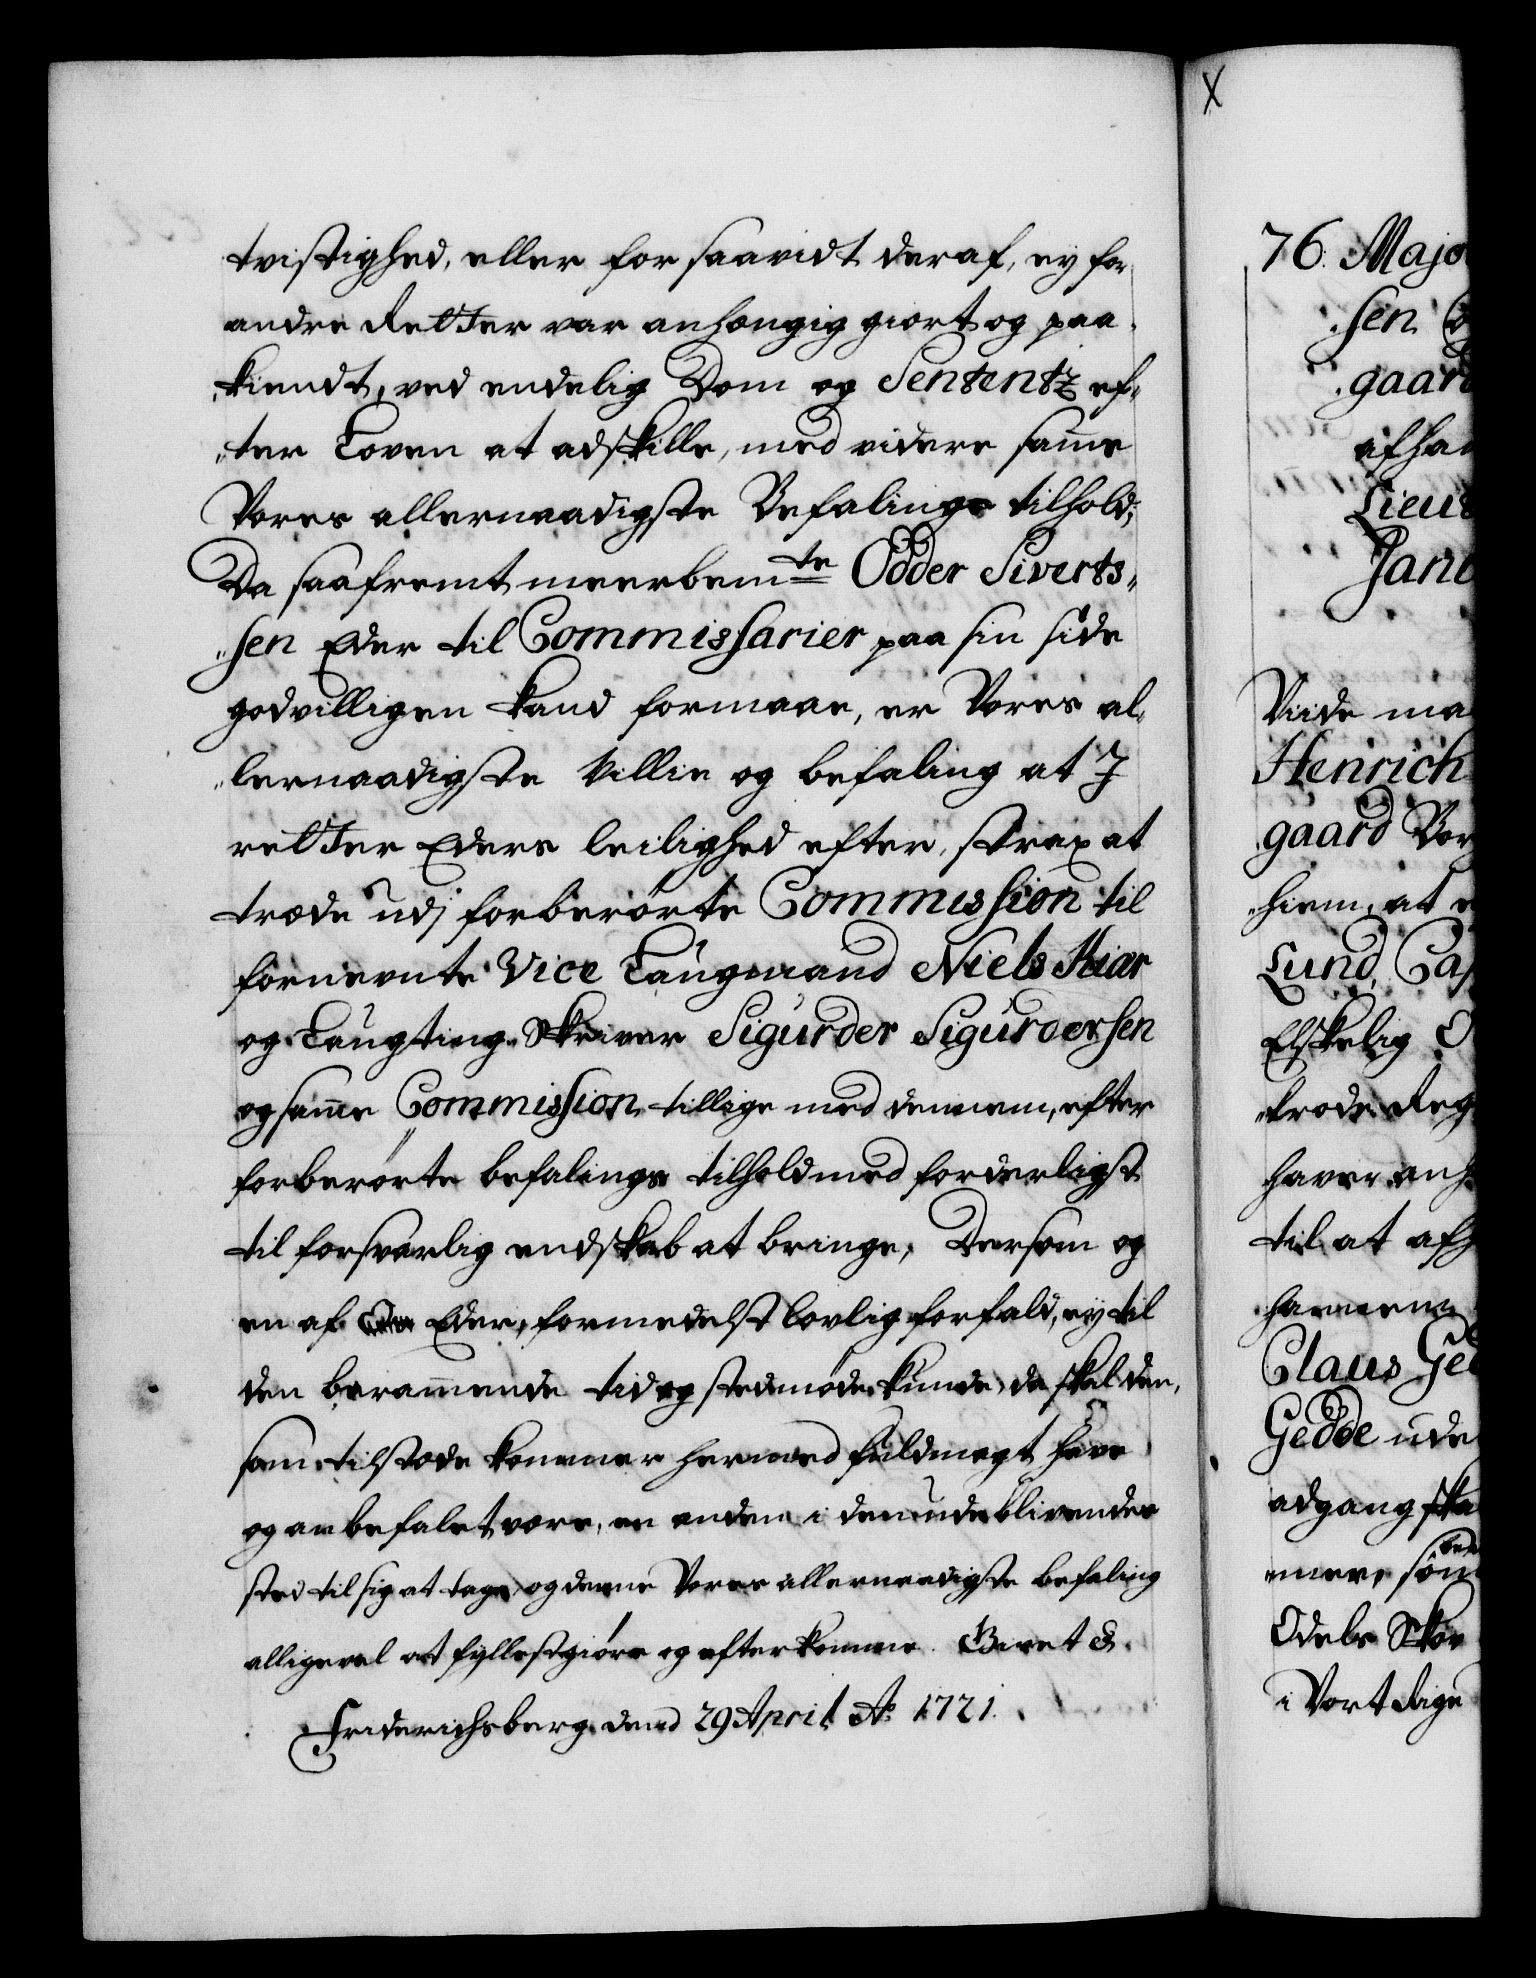 tvistighed, eller for saavidt deraf, ey for
andre Retter var anhængig giort og paa-
kiendt, ved endelig Dom og Sententz ef-
ter Loven at adskille, med videre samme
Vores allernaadigste Befalings tilhold;
Da saafremt meerbemte Odder Siverts-
sen Eder til Commissarier paa sin side
godvilligen kand formaae, er Vores al-
lernaadigste Villie og befaling at I
retter Eders leilighed efter, strax at
træde udj forberørte Commission til
fornevnte Vice Laugmand Niels Kiær
og Laugtings Skriver Sigurder Sigurdersen
og samme Commission, tillige med dennem, efter
forberørte befalings tilhold med forderligst
til forsvarlig endskab at bringe, Dersom og
en af Eder, formedelst lovlig forfald, ey til
den berammende tid og sted møde kunde, da skal den,
som tilstæde kommer hermed fuldmagt have
og anbefalet være, en anden i den udeblivendes
sted til sig at tage, og denne Vores allernaadigste befaling
alligevel at fyllestgiøre og efterkomme. Givet &.
Friderichsberg dend 29 April Ao 1721.
X
76. Majo
sen
gaard
afhan
Lieut
Jani
Viide ma
Henrich
gaard Vor
hiem, at
Lund, Cap
Elskelig O
træde Reg
haver anh
til at afh
hannem
Claus Ged
Gedde ude
adgang ska
mere, søm
Odels Skov
i Vort Rige